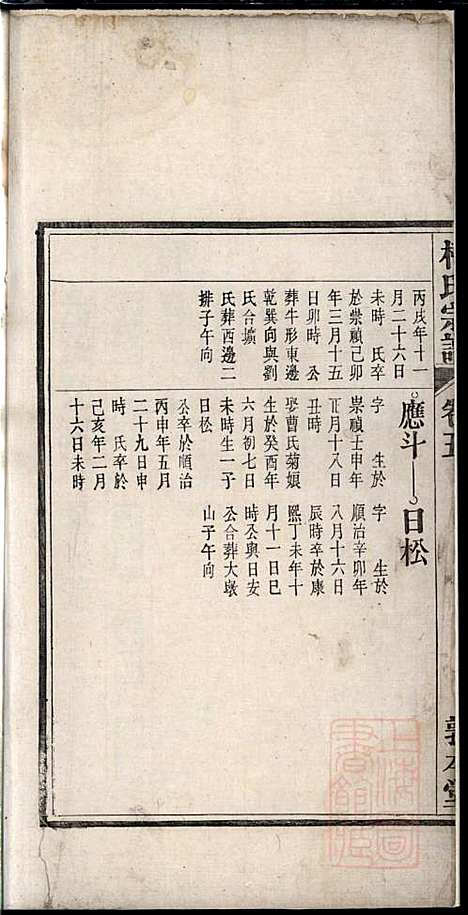 氏宗譜
卷五
敦本堂
丙戌年十一
月二十六日
未時　氏卒
於崇禎己卯
年三月十五
日卯時　公
葬牛形東邊
乾巽向與劉
氏合壙
氏葬西邊二
排子午向
應斗
字　　生於
崇禎壬申年
正月十八日
丑時
娶曹氏菊娘
生於癸酉年
六月初七日
未時生一子
日松
公卒於順治
丙申年五月
二十九日申
時　氏卒於
己亥年二月
十六日未時
日松
字　　生於
順治辛卯年
八月十六日
辰時卒於康
熙丁未年十
月十一日巳
時公與日安
公合葬大墩
山子午向
上海圖書館藏